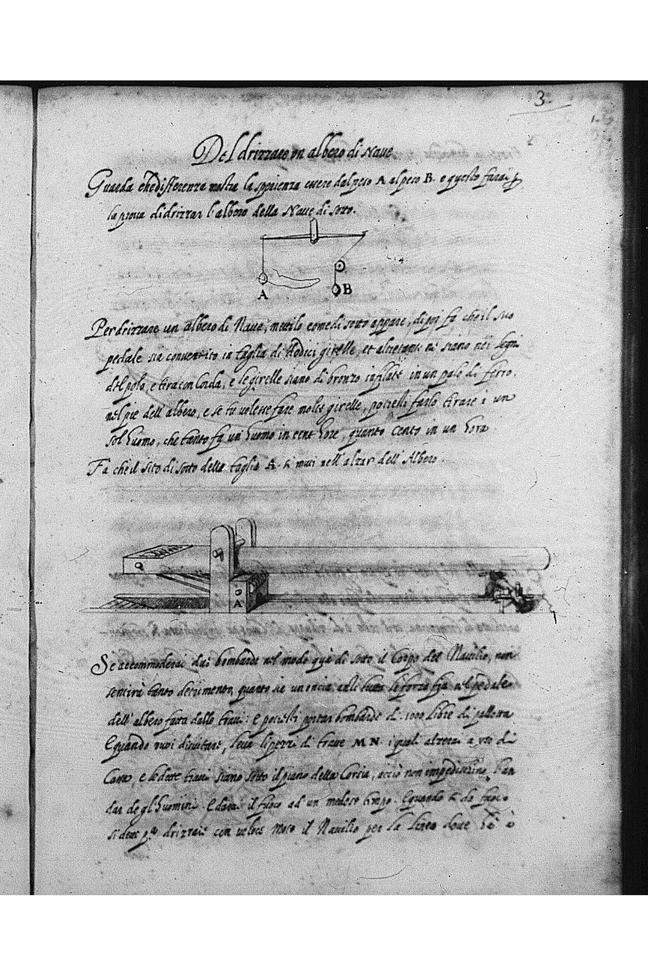 3
Del drizzare un albero di Nave
Guarda che differenza mostra la sperienza essere dal peso A al peso B. e questo farai p
la prova di drizzar l'albero della Nave di sotto.
A
B
Per drizzare un albero di Nave, mettilo come di sotto appare, di poi fa che il suo
pedale sia convertito in taglia di dodici girelle, et altretante ne siano nei segni
del polo, e tira con corda, e le girelle siano di bronzo infilate in un palo di ferro
nel pie dell'albero, e se tu volesse fare molte girelle, potresti farlo tirare a un
sol huomo, che tanto fa un huomo in cento hore, quanto cento in un hora
Fa che il sito di sotto della taglia A. si muti nell'alzar dell'Albero.
A
Se accommoderai due bombarde nel modo qua di sotto il Corpo del Navilio, non
sentirà tanto detrimento, quanto se
dell'albero fatta dalle travi: e potresti portar bombarde di 1000 libre di pallotta
E quando vuoi dirizzare, leva li pezzi di trave M N i quali
e le dette travi siano sotto il piano della Corsia, acciò non impedischino l'an
dar de gl'huomini. E darai il fuoco ad un medesimo tempo. E quando si da fuoco
si deve drizzare con veloce moto il Navilio per la linea dove